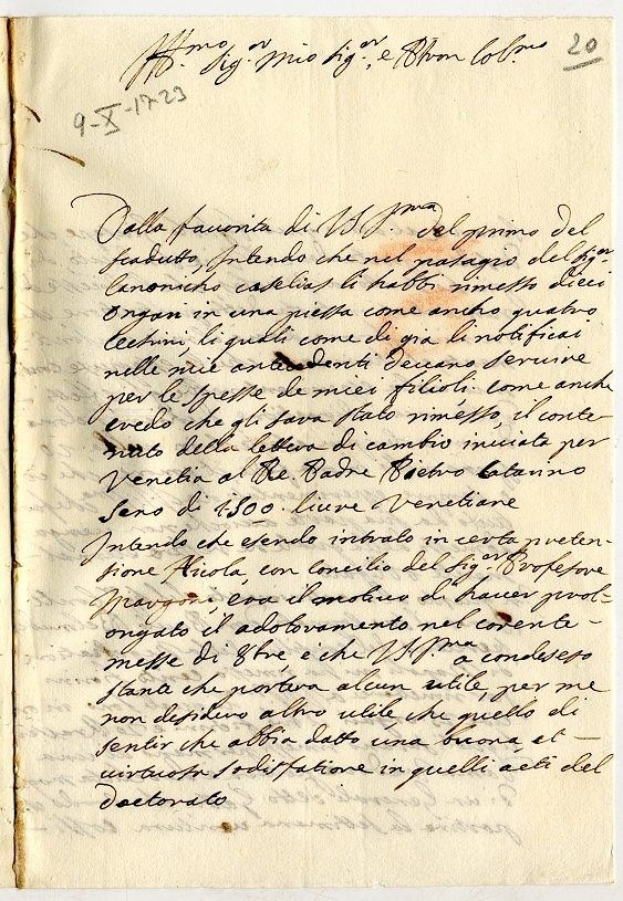 Ill.mo Sig.or mio Sig.or, e Pron Col.mo
20
9-X-1723
Dalla fauorita di VS Ill.ma del primo del
scadutto, Intendo che nel pasagio del Sig.or
Canonicho caselias li habbi rimesso dieci
ongari in una piessa come ancho quatro
Cechini, li quali come di gia li notificai
nelle mie antecedenti deuano seruire
per le spesse de miei filioli; come anche
credo che gli sara stato rimesso, il conte-
nuto della lettera di cambio inuiata per
Venetia al Re. Padre Pietro Catarino
Seno di 1500. liure Venetiane
Intendo che esendo intrato in certa preten-
sione Nicola, con concilio del Sig.or Profesore
Margoni, era il motiuo di hauer prol-
ongato il adotoramento nel corente-
messe di 8bre, e che VS Ill.ma a condeseso
stante che porteva alcun utile, per me
non desidero altro utile, che quello di
sentir che abbia datto una buona, et-
uirtuosa sodisfatione in quelli acti del
doctorato